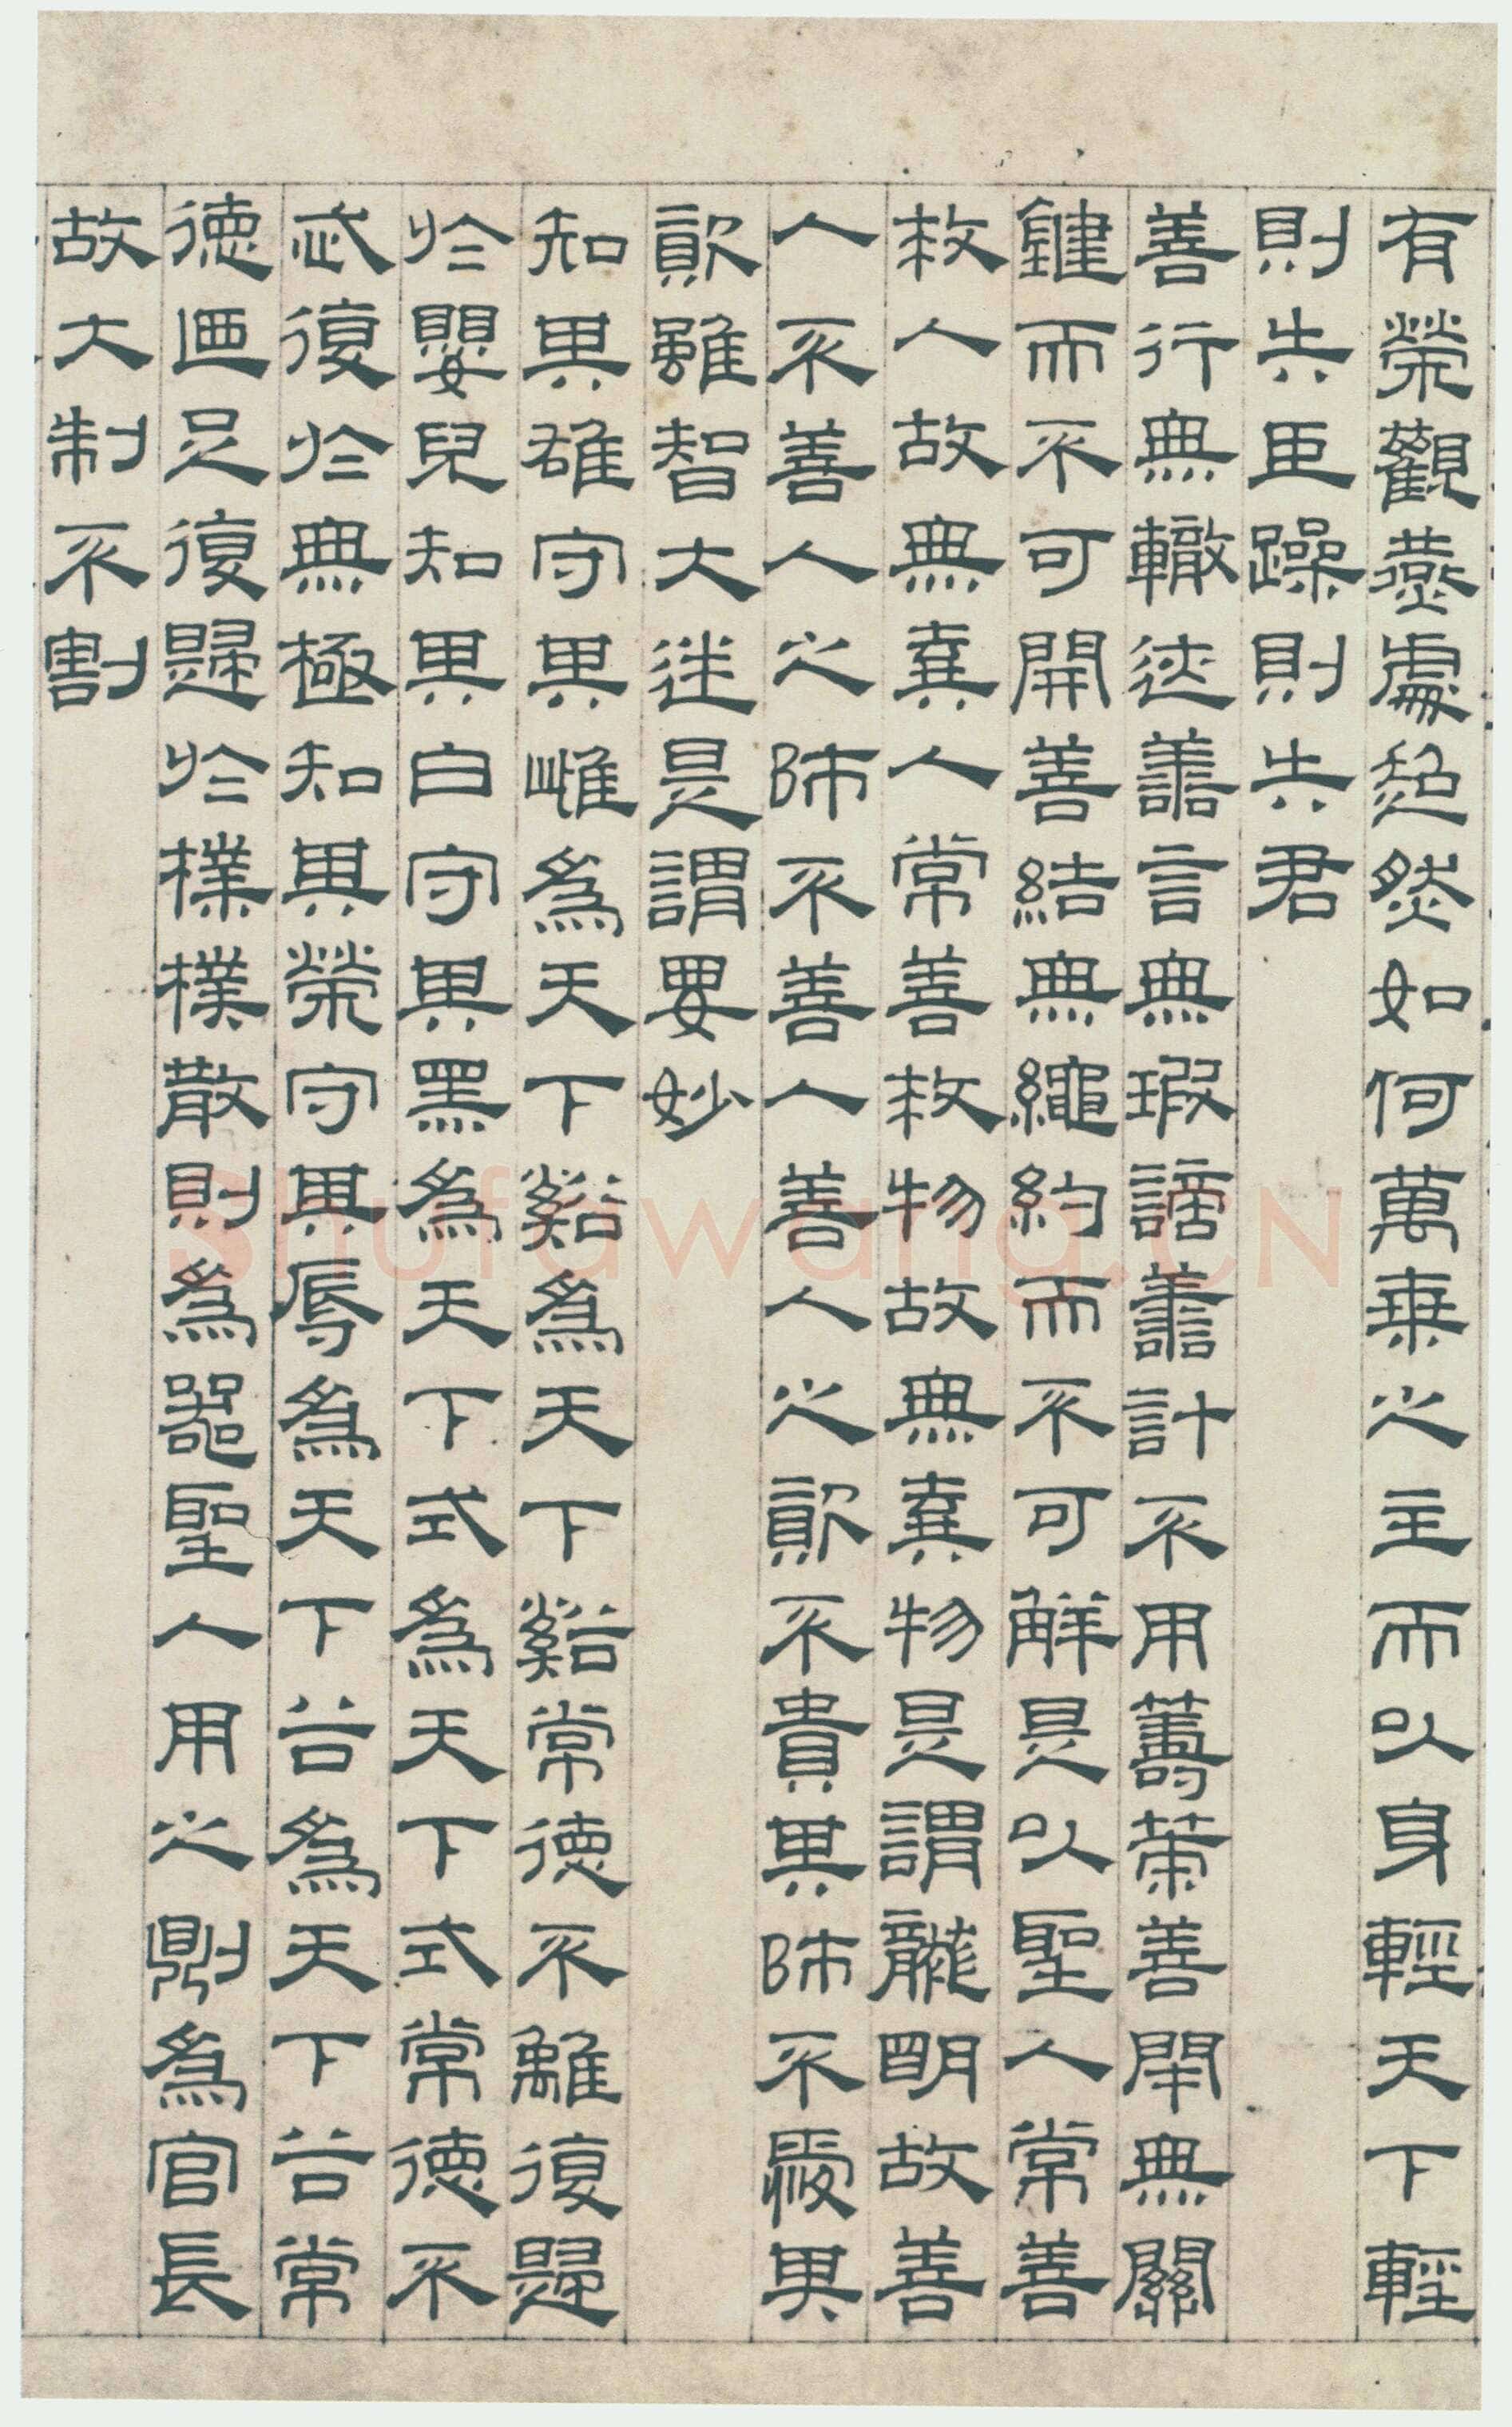 有榮觀燕處超然如何萬乗之主而以身輕天下輕
則失臣躁則失君
善行無轍迹譱言無瑕謫譱計不用籌策善閉無關
鍵而不可開善結無繩約而不可解是以聖人常善
救人故無棄人常善救物故無棄物是謂襲明故善
人不善人之師不善人善人之資不貴其師不愛其
資雖智大迷是謂要妙
知其雄守其雌為天下谿為天下谿常德不離復歸
於嬰兒知其白守其黑為天下式為天下式常德不
忒復於無極知其榮守其辱為天下谷為天下谷常
德廼足復歸於樸樸散則為器聖人用之則為官長
故大制不割
Shufawang.CN